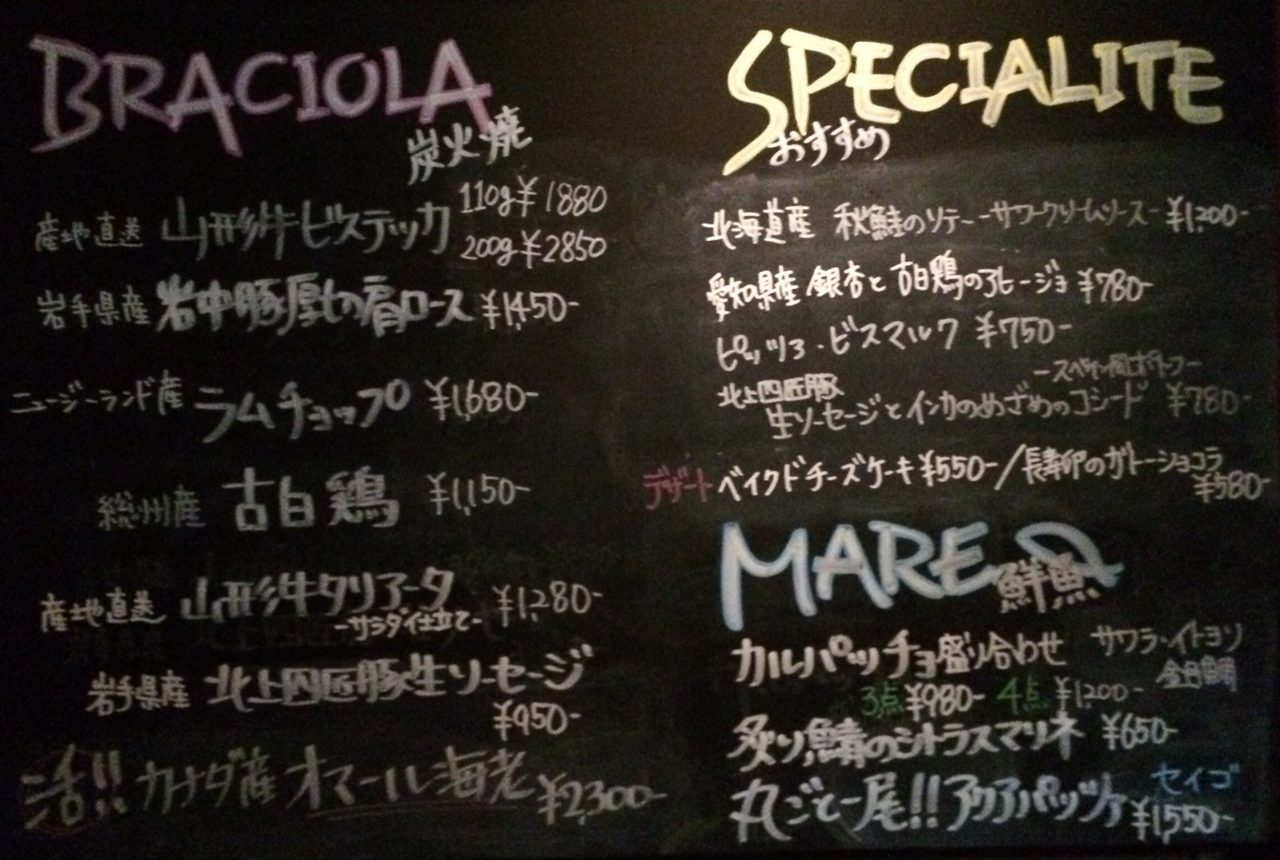 BRACIOLA
炭火焼
産地直送 山形牛ビステッカ 110g ¥1880
200g ¥2850
岩手県産 岩中豚厚切肩ロース ¥1,450-
ニュージーランド産 ラムチョップ ¥1,680-
総州産 古白鶏 ¥1,150-
産地直送 山形牛タリアータ ¥1,280-
-サラダ仕立て-
岩手県産 北上四匠豚生ソーセージ
¥950-
活!! カナダ産 オマール海老 ¥2,300-
SPECIALITE
おすすめ
北海道産 秋鮭のソテー -サワークリームソース- ¥1,200-
愛知県産 銀杏と古白鶏のアヒージョ ¥780-
ピッツァ・ビスマルク ¥750-
-スペイン風ポトフ-
北上四匠豚
生ソーセージとインカのめざめのコシード ¥780-
デザート ベイクドチーズケーキ ¥550- / 長寿卵のガトーショコラ
¥580-
MARE
鮮魚
カルパッチョ盛り合わせ サワラ・イトヨリ
金目鯛
3点 ¥980- 4点 ¥1,200-
炙り鯖のシトラスマリネ ¥650-
丸ごと一尾!! アクアパッツァ セイゴ
¥1,550-